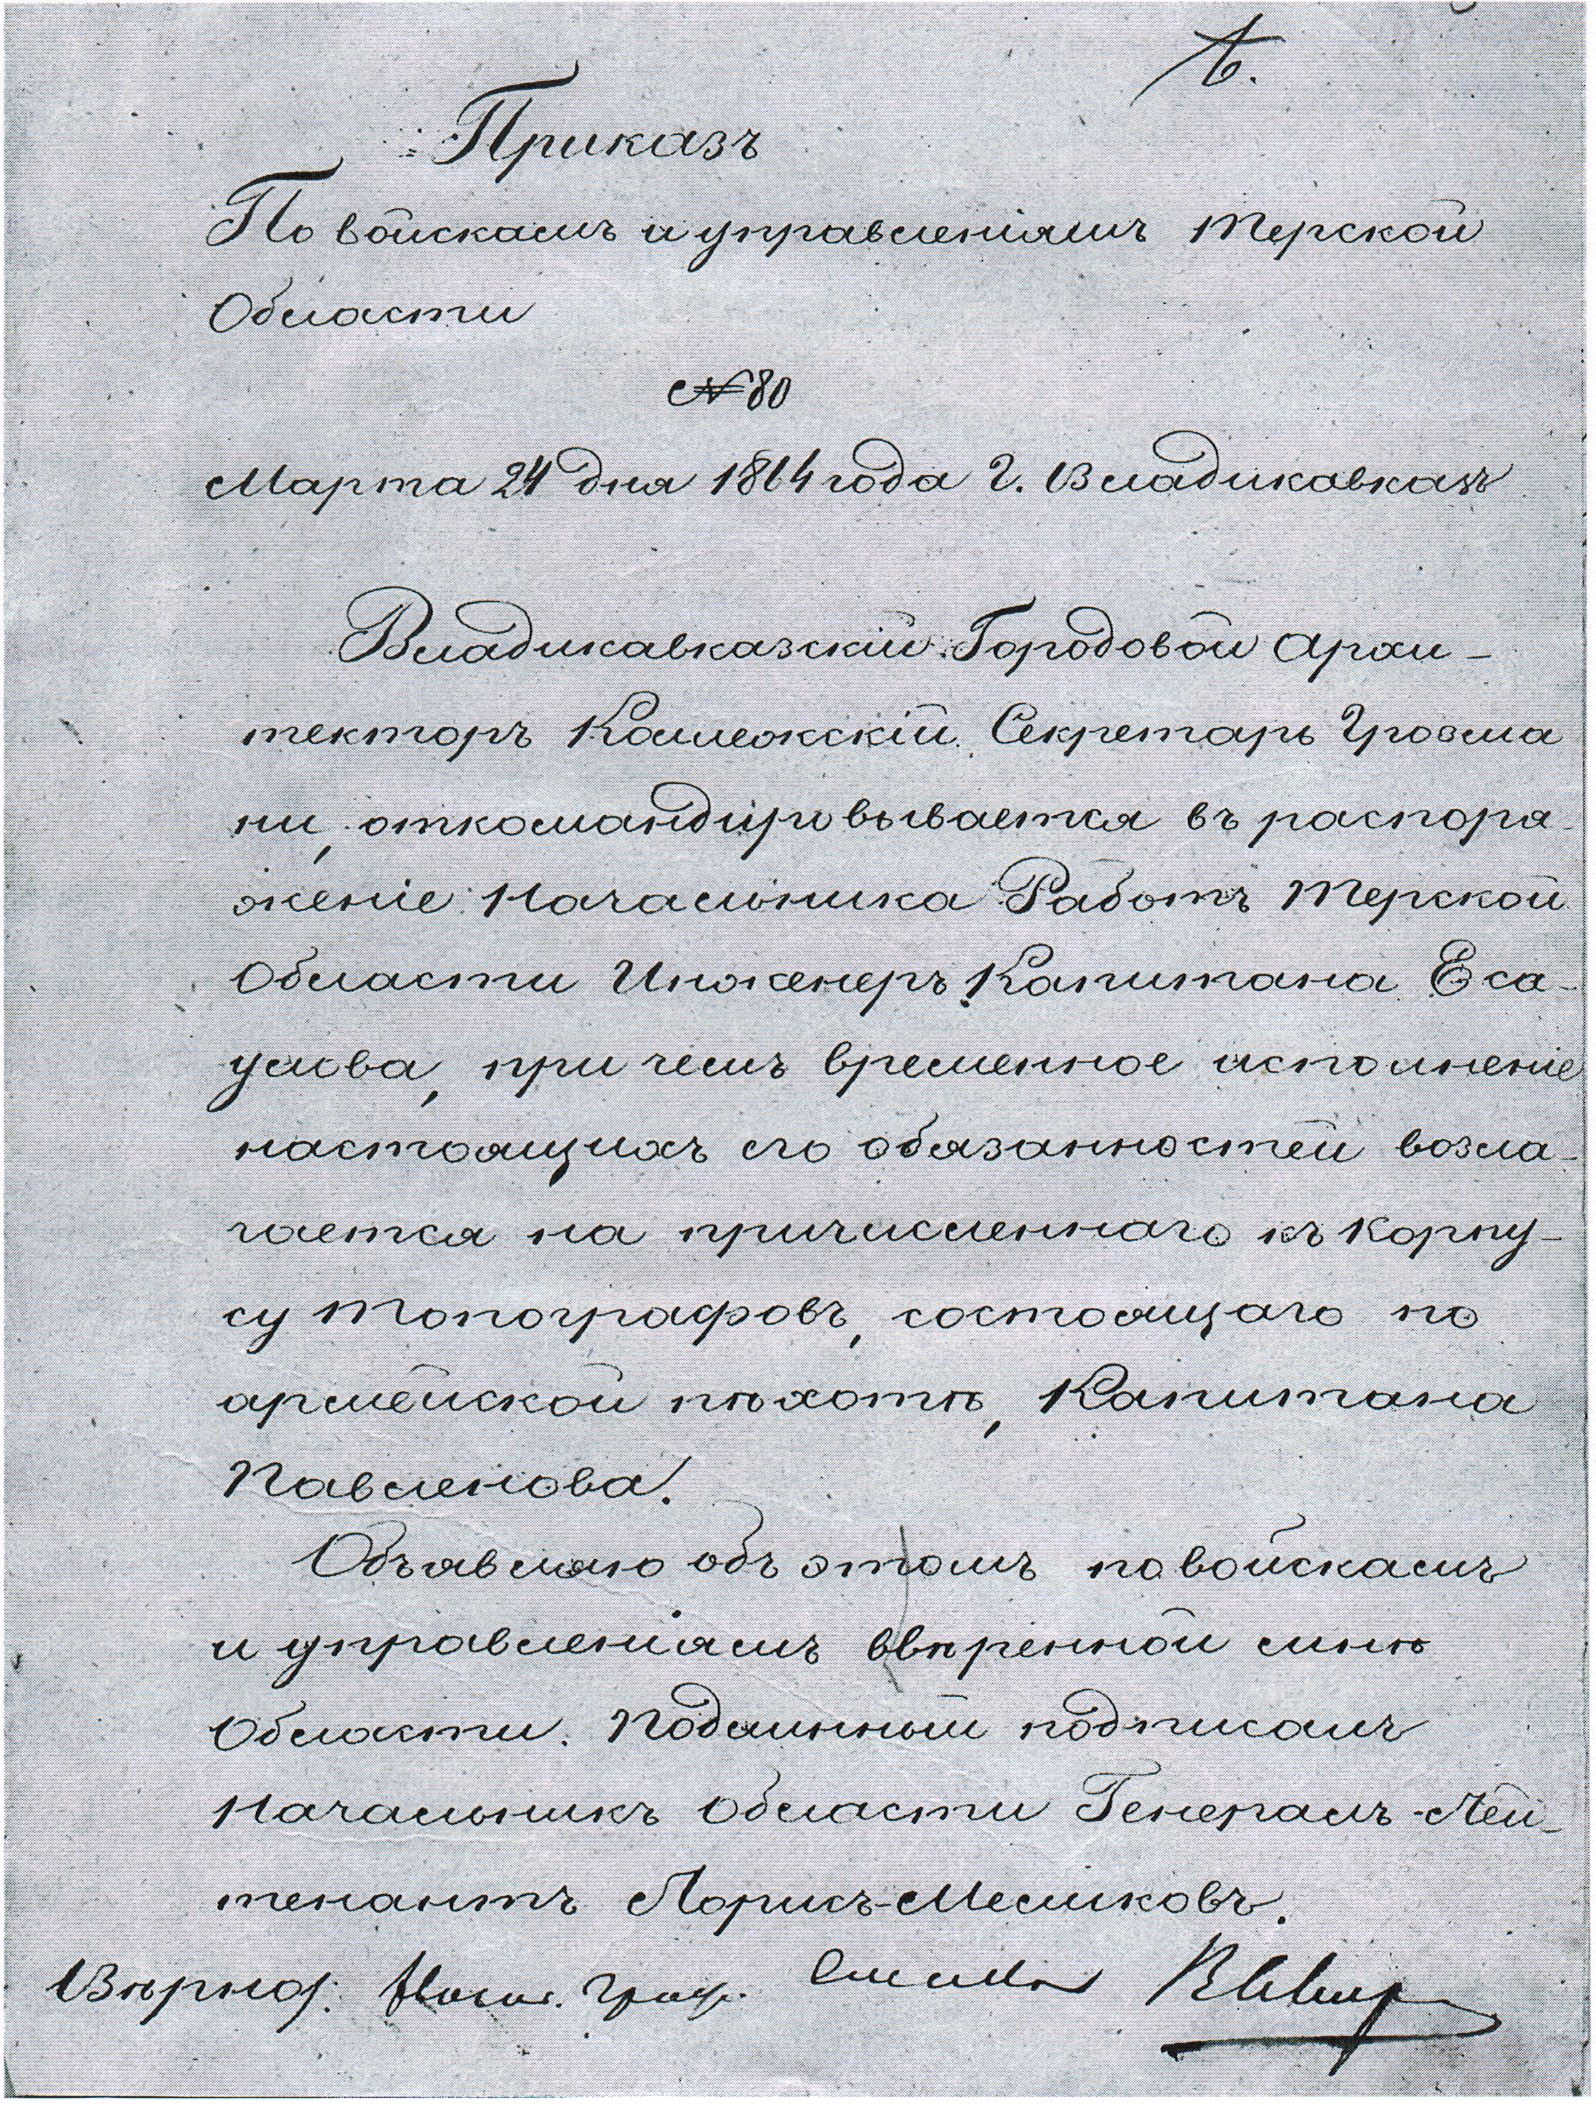 Приказъ
По войскамъ и управленіямъ Терской
Области
№ 80
Марта 24 дня 1864 года Г. Владикавказъ
Владикавказскій Городовой Архи-
текторъ Коллежскій Секретарь Грозма
ни, откомандировывается въ распоря-
женіе Начальника Работъ Терской
Области Инженеръ Капитана Еса-
улова, при чемъ временное исполненіе
настоящихъ его обязанностей возла-
гается на причисленнаго къ Корпу-
су Топографовъ, состоящаго по
армейской пѣхотѣ, Капитана
Павленова.
Объявляю объ этомъ по войскамъ
и управленіямъ ввѣренной мнѣ
Области. Подлинный подписалъ
Начальникъ Области Генералъ-Лей-
тенантъ Лорисъ-Меликовъ.
Вѣрно: